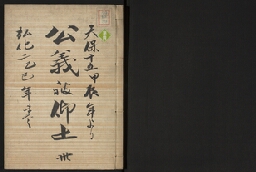 天保十五甲辰年より
公義被仰上
卅
弘化二乙巳年